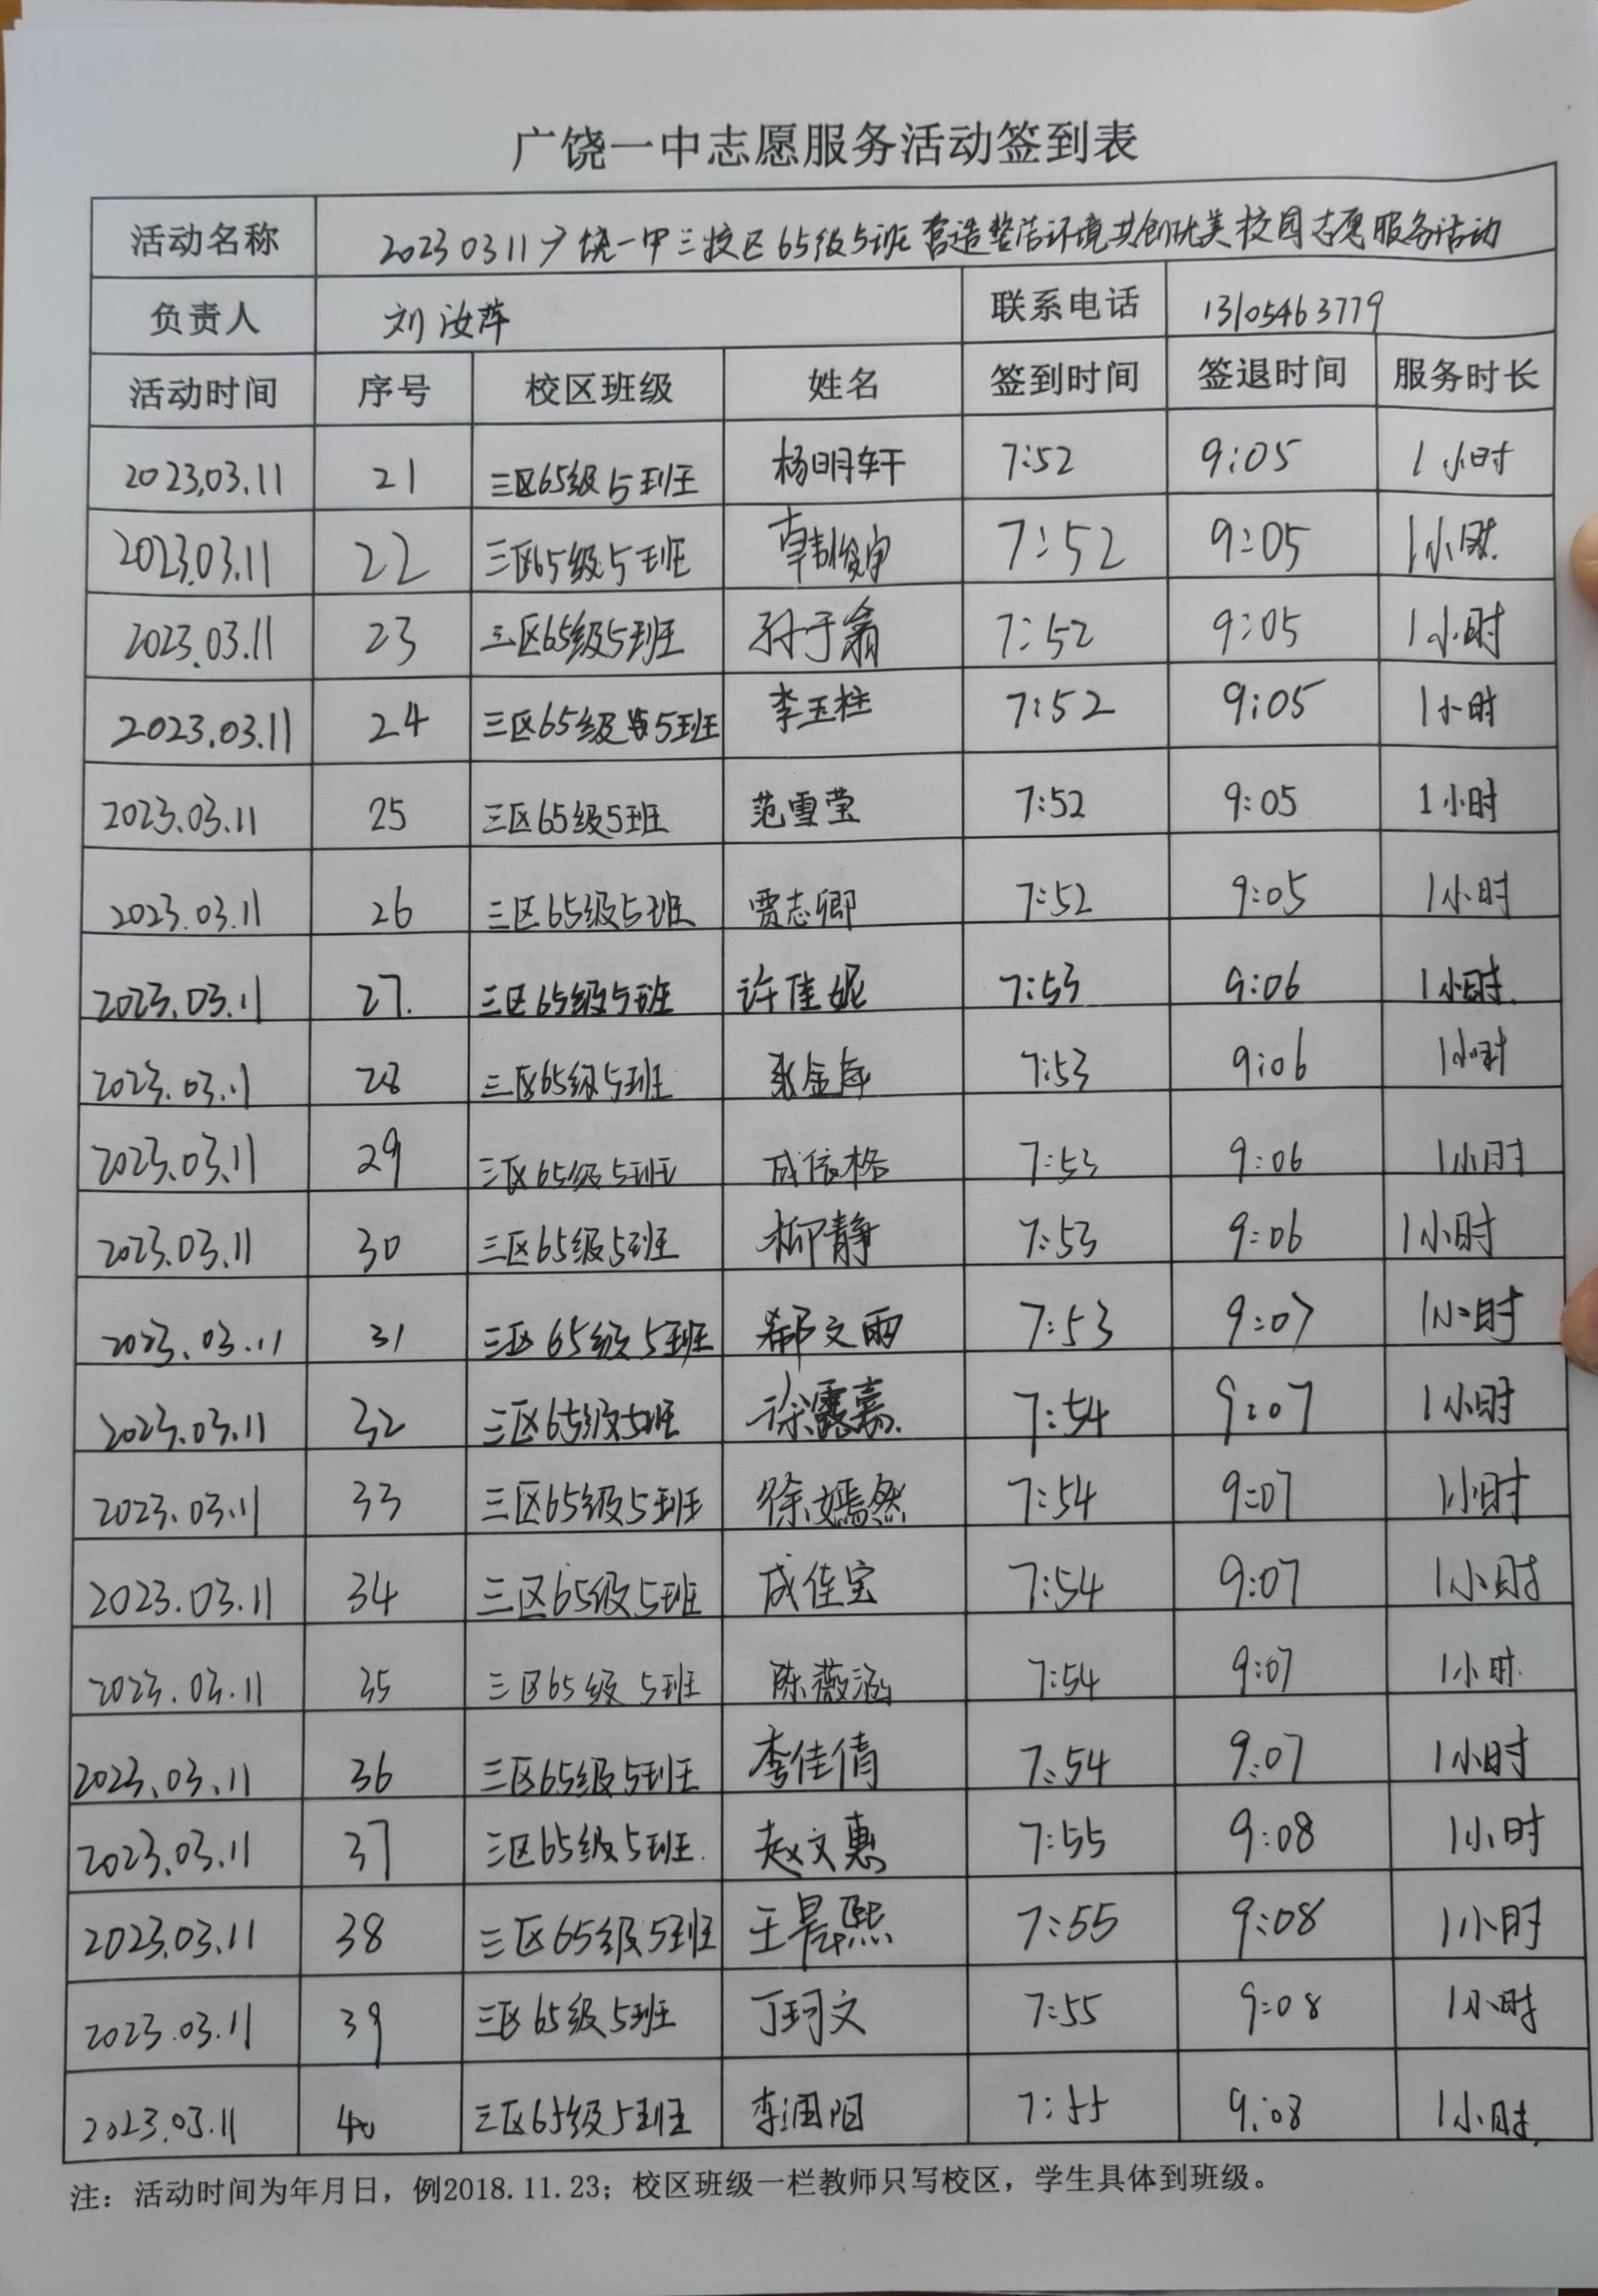 广饶一中志愿服务活动签到表
活动名称 20230311广饶一中三校区65级5班营造整洁环境共创优美校园志愿服务活动
负责人 刘汝萍 联系电话 13105463779
活动时间 序号 校区班级 姓名 签到时间 签退时间 服务时长
2023.03.11 21 三区65级5班 杨明轩 7:52 9:05 1小时
2023.03.11 22 三区65级5班 韩俊宇 7:52 9:05 1小时
2023.03.11 23 三区65级5班 孙于翕 7:52 9:05 1小时
2023.03.11 24 三区65级5班 李玉柱 7:52 9:05 1小时
2023.03.11 25 三区65级5班 范雪莹 7:52 9:05 1小时
2023.03.11 26 三区65级5班 贾志卿 7:52 9:05 1小时
2023.03.11 27. 三区65级5班 许佳妮 7:53 9:06 1小时
2023.03.11 28 三区65级5班 张金 7:53 9:06 1小时
2023.03.11 29 三区65级5班 成依格 7:53 9:06 1小时
2023.03.11 30 三区65级5班 柳静 7:53 9:06 1小时
2023.03.11 31 三区65级5班 郗文雨 7:53 9:07 1小时
2023.03.11 32 三区65级5班 徐露嘉 7:54 9:07 1小时
2023.03.11 33 三区65级5班 徐嫣然 7:54 9:07 1小时
2023.03.11 34 三区65级5班 成佳宝 7:54 9:07 1小时
2023.03.11 35 三区65级5班 陈薇涵 7:54 9:07 1小时
2023.03.11 36 三区65级5班 李佳倩 7:54 9:07 1小时
2023.03.11 37 三区65级5班 赵文惠 7:55 9:08 1小时
2023.03.11 38 三区65级5班 王晨熙 7:55 9:08 1小时
2023.03.11 39 三区65级5班 丁珂文 7:55 9:08 1小时
2023.03.11 40 三区65级5班 李润阳 7:55 9:08 1小时
注：活动时间为年月日，例2018.11.23；校区班级一栏教师只写校区，学生具体到班级。